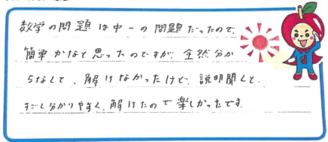 数学の問題は中一の問題だったので、
簡単かなと思ったのですが、全然分か
らなくて、解けなかったけど、説明聞くと、
すごし分かりやすく、解けたので楽しかったです。